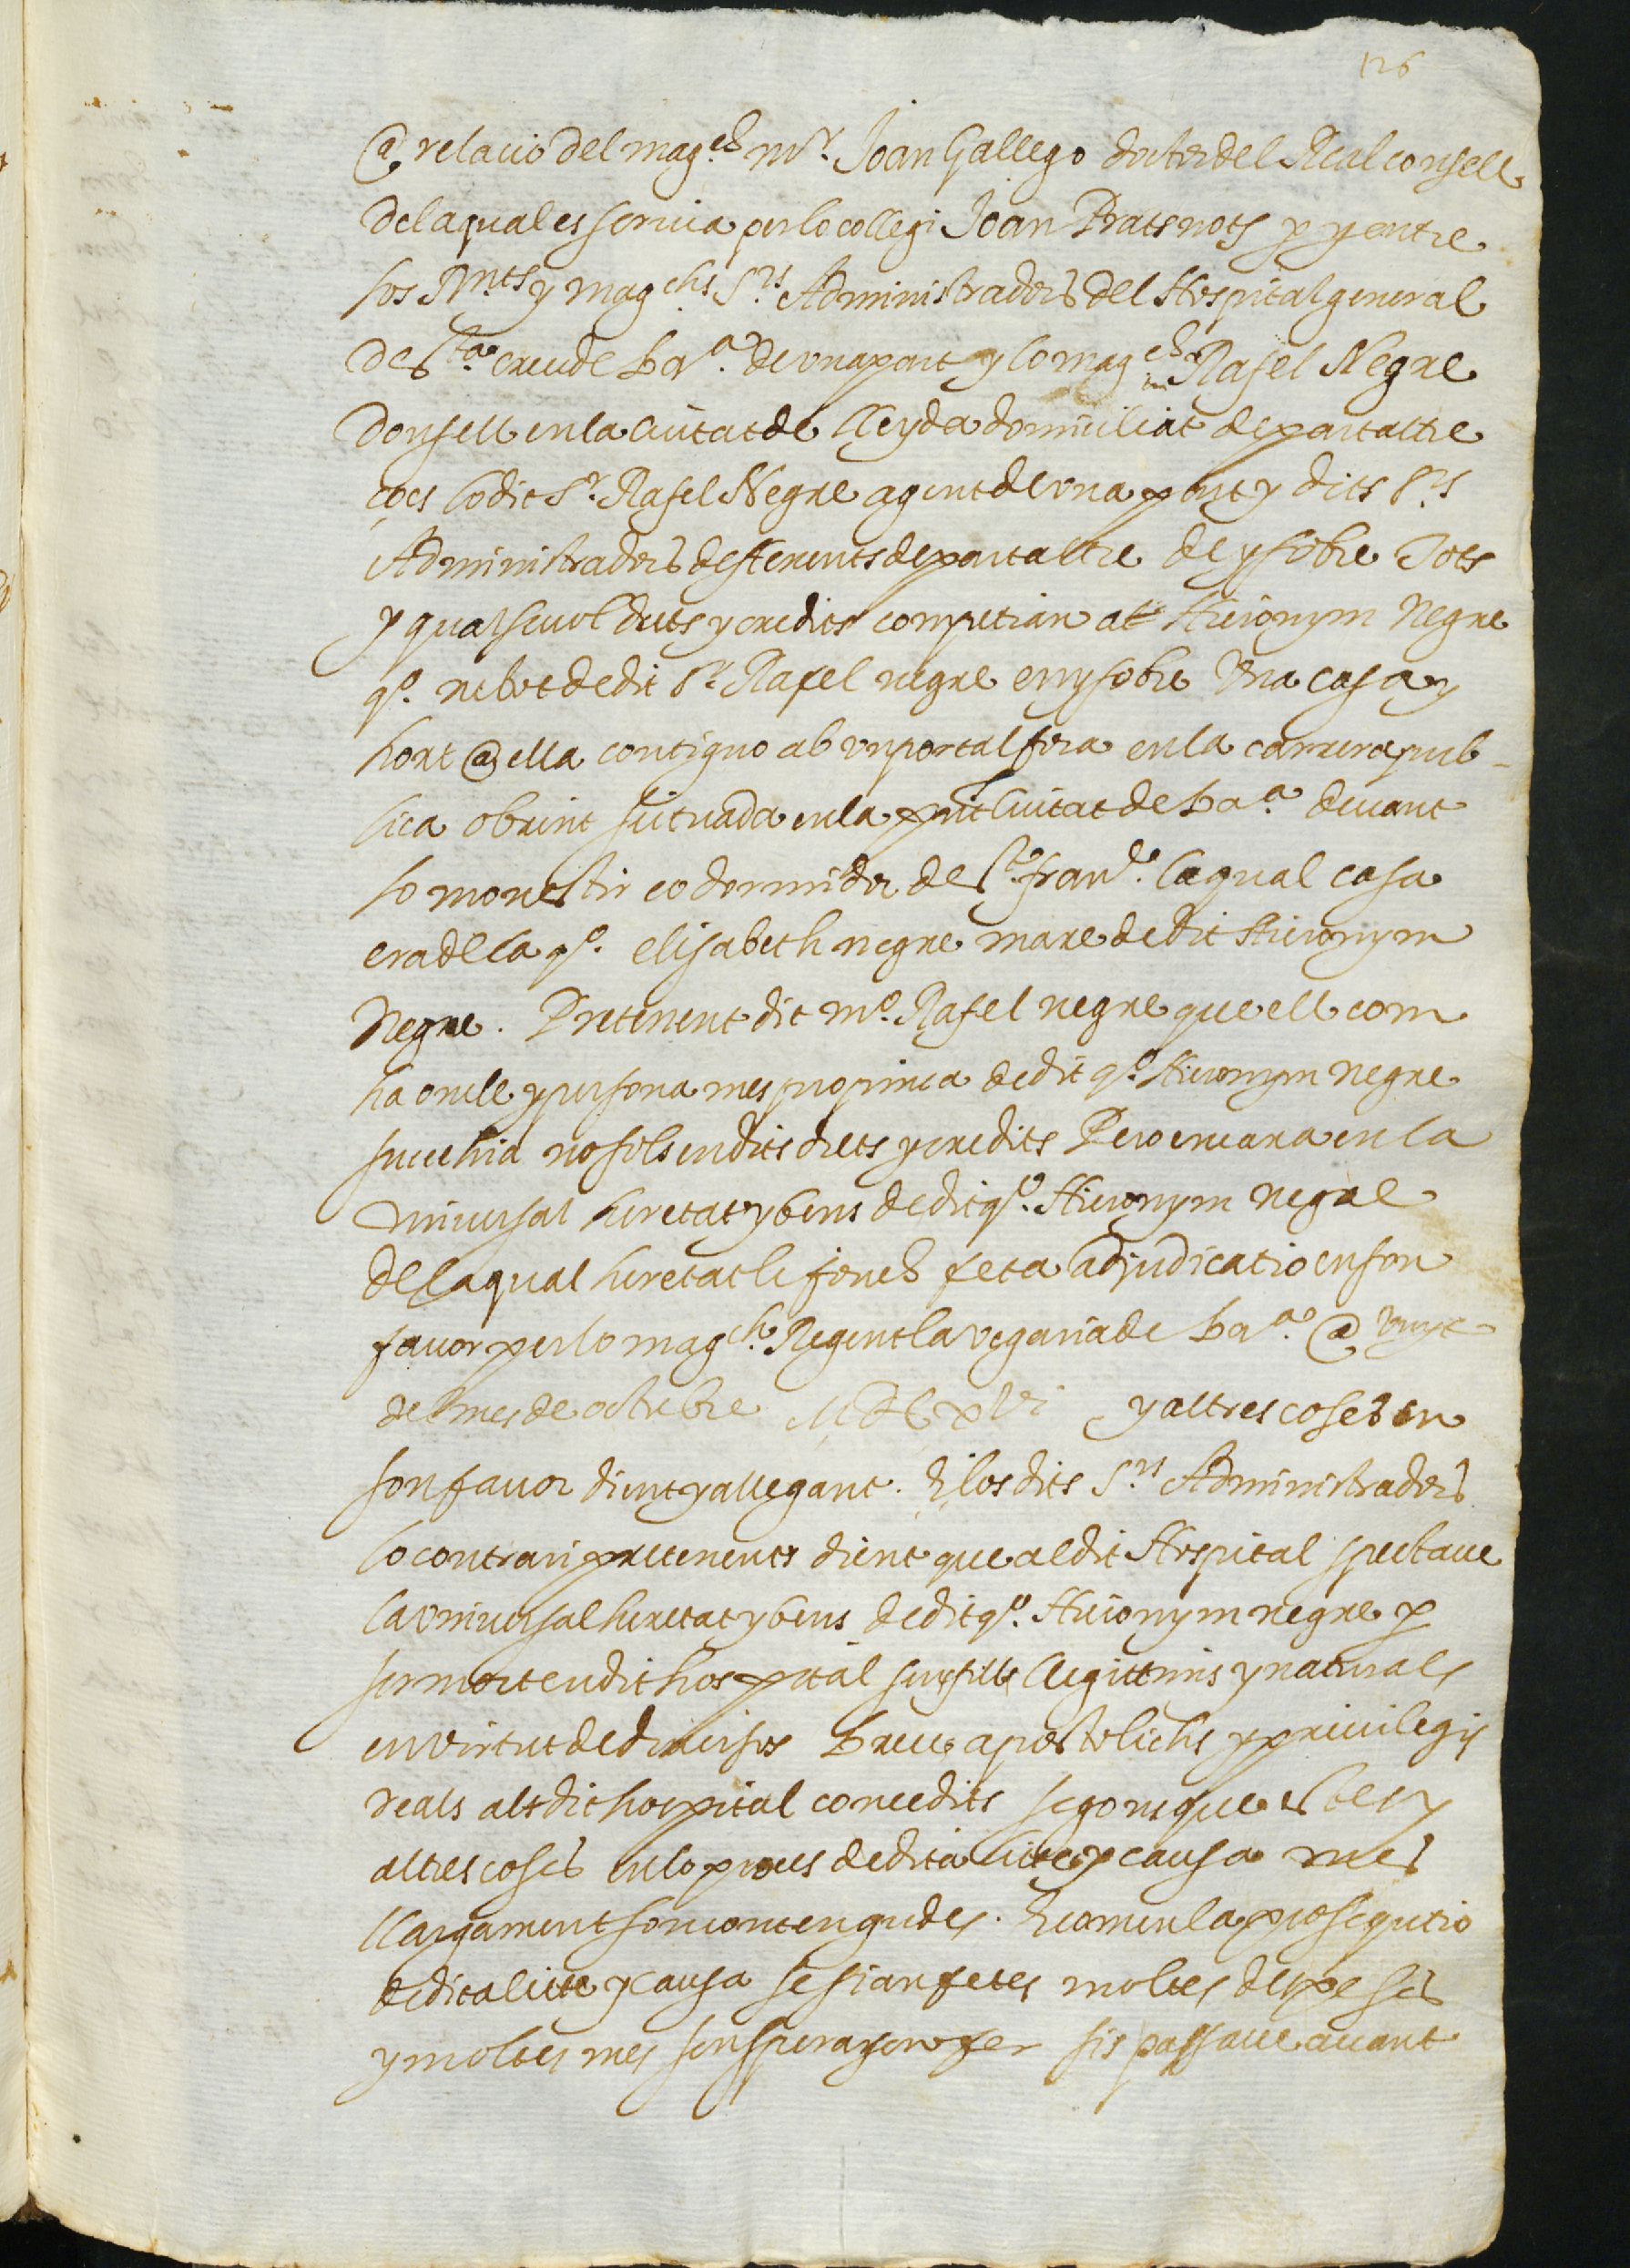 126
@ relacio del mag.ch m.r Joan Gallego doctor del Real consell
dela qual es scriua per lo collegi Joan Prats nots p y entre
los R.nts y mag.chs S.rs Administradors del Hospital general
de S.ta creu de Bar.a de vna part y lo mag.ch m Rafel Negre
donsell en la ciutat de lleyda domiciliat de part altre
ço es lo dit S.r Rafel Negre agent de vna part y dits S.rs
Administradors deffenents de part altre de y sobre Tots
y qualseuol drets y credits competian al Hieronym Negre
q.o nebot de dit S.r Rafel negre en y sobre Vna casa y
hort @ ella contiguo ab vn portal fora en la carrera pub-
lica obrint situada en la pnt ciutat de Bar.a deuant
lo monestir eo dormidor de S.t fran.ch la qual casa
era de la q.o elisabeth negre mare de dit Hieronym
Negre. Pretenent dit m.o Rafel negre que ell com
ha oncle y persona mes propinca de dit q.o Hieronym negre
succehia no sols en dits drets y credits Pero encara en la
vniuersal heretat y bens de dit q.o Hieronym negre
de la qual heretat li fonch feta adjudicatio en son
fauor per lo mag.ch Regent la vegaria de Bar.a @ vuyt
del mes de octubre MDLxVi y altres coses en
son fauor dient y allegant. E los dits S.rs Administradors
lo contrari pretenents dient que al dit Hospital spectaue
la vniuersal heretat y bens de dit q.o Hieronym negre p
ser mort en dit hospital sens fills llegittims y naturals
en virtut de diuersos Breus apostolichs y priuilegis
reals al dit hospital concedits segons que estes y
altres coses en lo proces de dita lite y causa mes
llargament son contengudes. E com en la prosequtio
de dita lite y causa se sian fetes moltes despeses
y moltes mes sen sperassen fer sis passaue auant